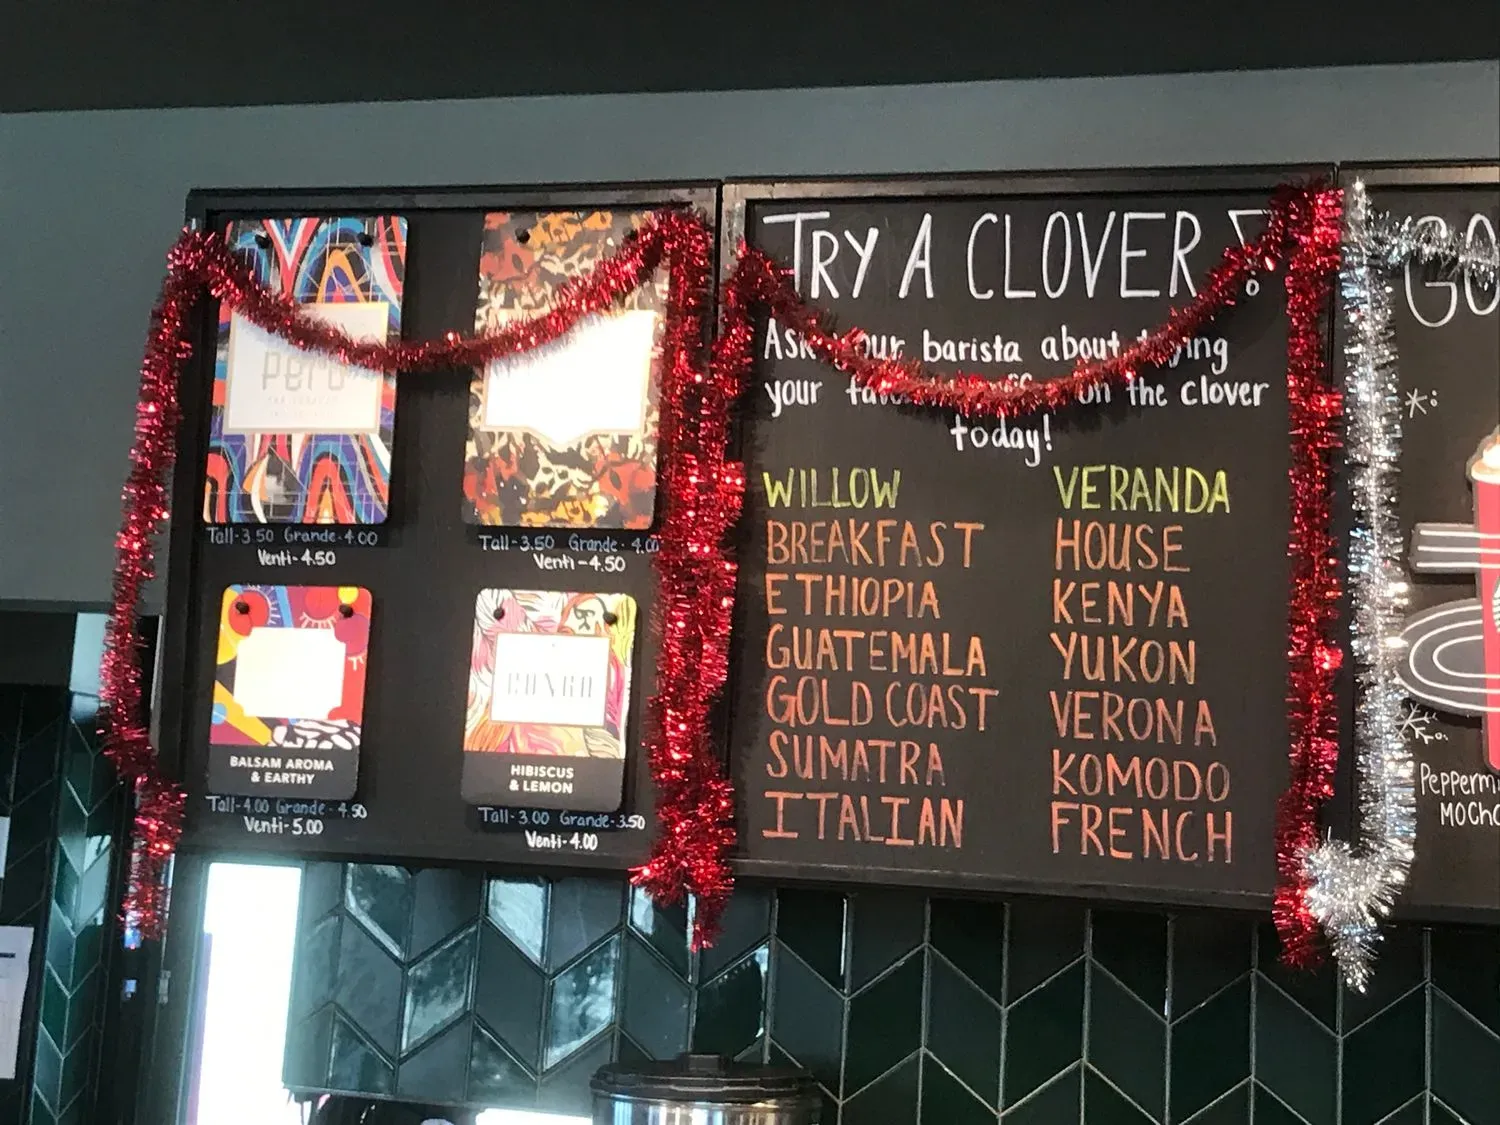 Peru
Tall-3.50 Grande-4.00
Venti-4.50
Tall-3.50 Grande-4.00
Venti-4.50
BALSAM AROMA
& EARTHY
Tall-4.00 Grande-4.50
Venti-5.00
HIBISCUS
& LEMON
Tall-3.00 Grande-3.50
Venti-4.00
TRY A CLOVER!
Ask your barista about trying
your on the clover
today!
WILLOW VERANDA
BREAKFAST HOUSE
ETHIOPIA KENYA
GUATEMALA YUKON
GOLD COAST VERONA
SUMATRA KOMODO
ITALIAN FRENCH
GO